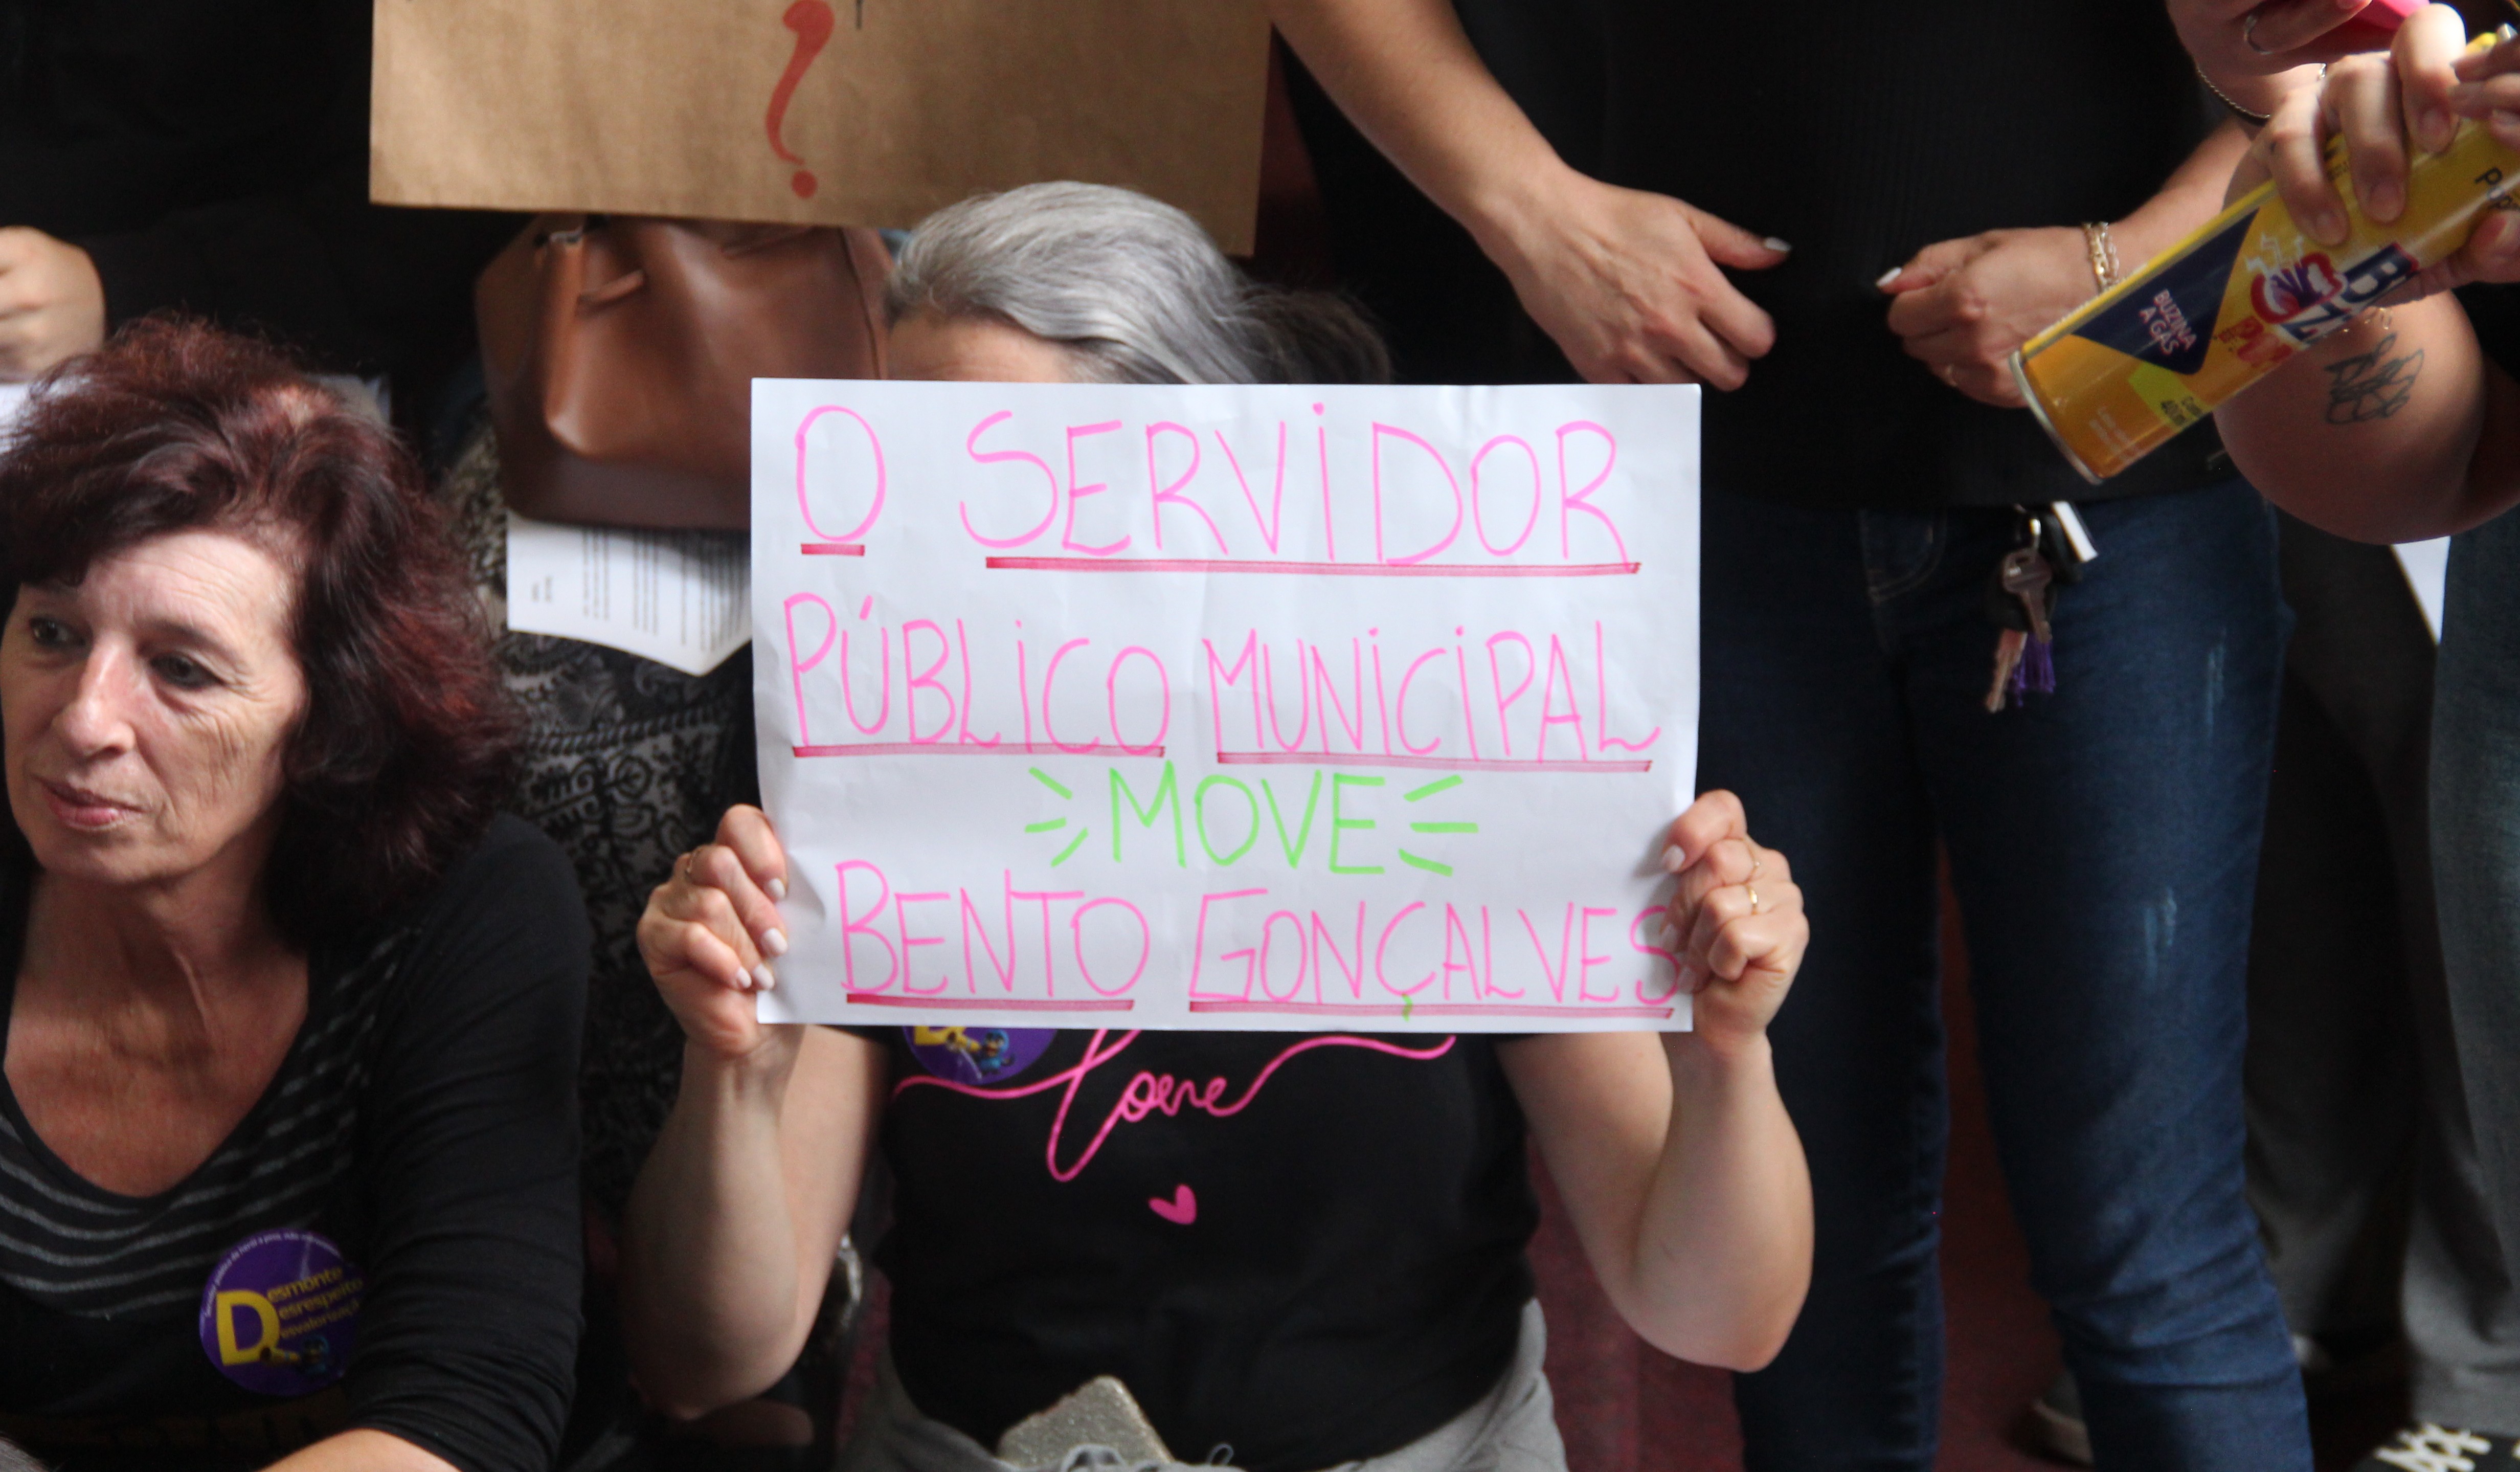 ?
O SERViDOR
PÚBLiCO MUNiCiPAL
MOVE
BENTO GONÇALVES
love
Desmonte
Desrespeito
BUZINA
A GÁS